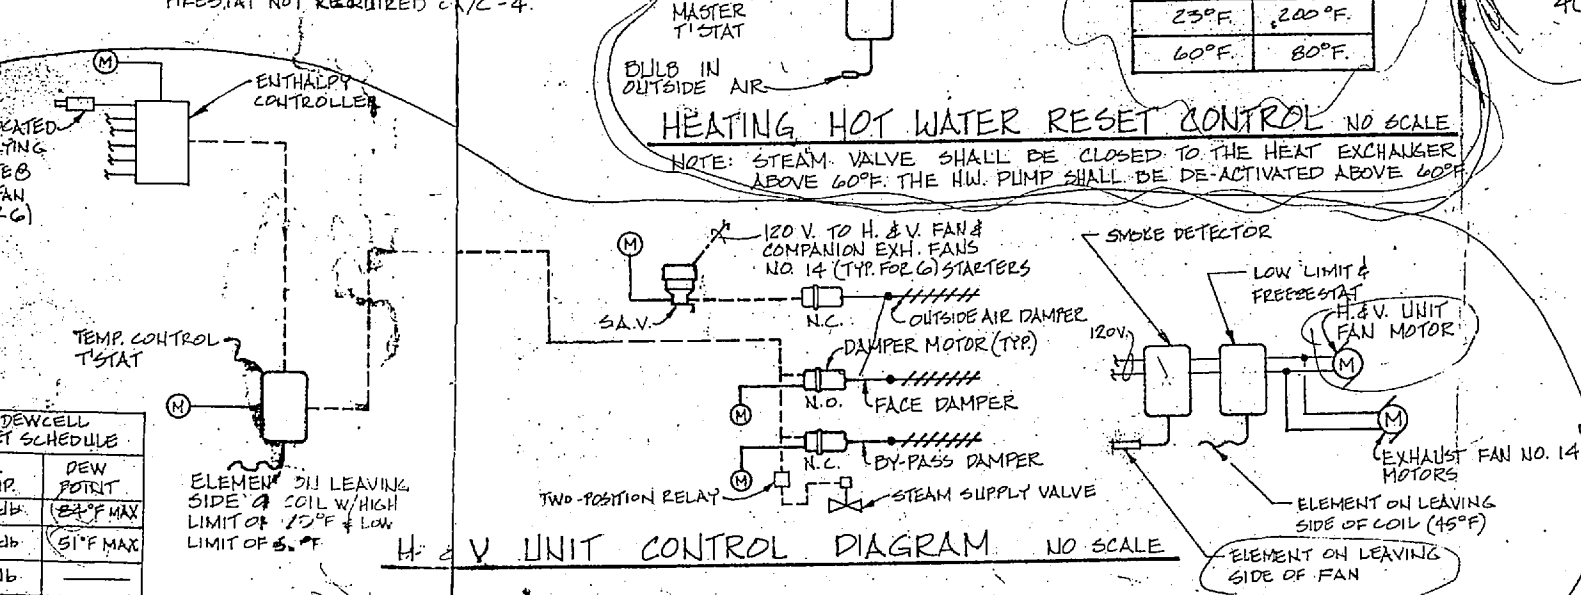 NOT REQUIRED
MASTER
T'STAT
BULB IN
OUTSIDE AIR
23°F. 200°F.
60°F. 80°F.
HEATING HOT WATER RESET CONTROL NO SCALE
NOTE: STEAM VALVE SHALL BE CLOSED TO THE HEAT EXCHANGER
ABOVE 60°F. THE H.W. PUMP SHALL BE DE-ACTIVATED ABOVE 60°F
M
ENTHALPY
CONTROLLER
FAN
TEMP. CONTROL
T'STAT
M
ELEMENT ON LEAVING
SIDE COIL W/HIGH
LIMIT OF & LOW
LIMIT OF
DEWCELL
SCHEDULE
DEW
POINT
84°F MAX
51°F MAX
M
120 V. TO H. & V. FAN &
COMPANION EXH. FANS
NO. 14 (TYP. FOR 6) STARTERS
S.A.V.
N.C.
OUTSIDE AIR DAMPER
DAMPER MOTOR (TYP.)
M
N.O.
FACE DAMPER
M
N.C.
BY-PASS DAMPER
TWO-POSITION RELAY
STEAM SUPPLY VALVE
SMOKE DETECTOR
LOW LIMIT &
FREEZESTAT
H. & V. UNIT
FAN MOTOR
120V.
M
M
EXHAUST FAN NO. 14
MOTORS
ELEMENT ON LEAVING
SIDE OF COIL (45°F)
ELEMENT ON LEAVING
SIDE OF FAN
H & V UNIT CONTROL DIAGRAM NO SCALE